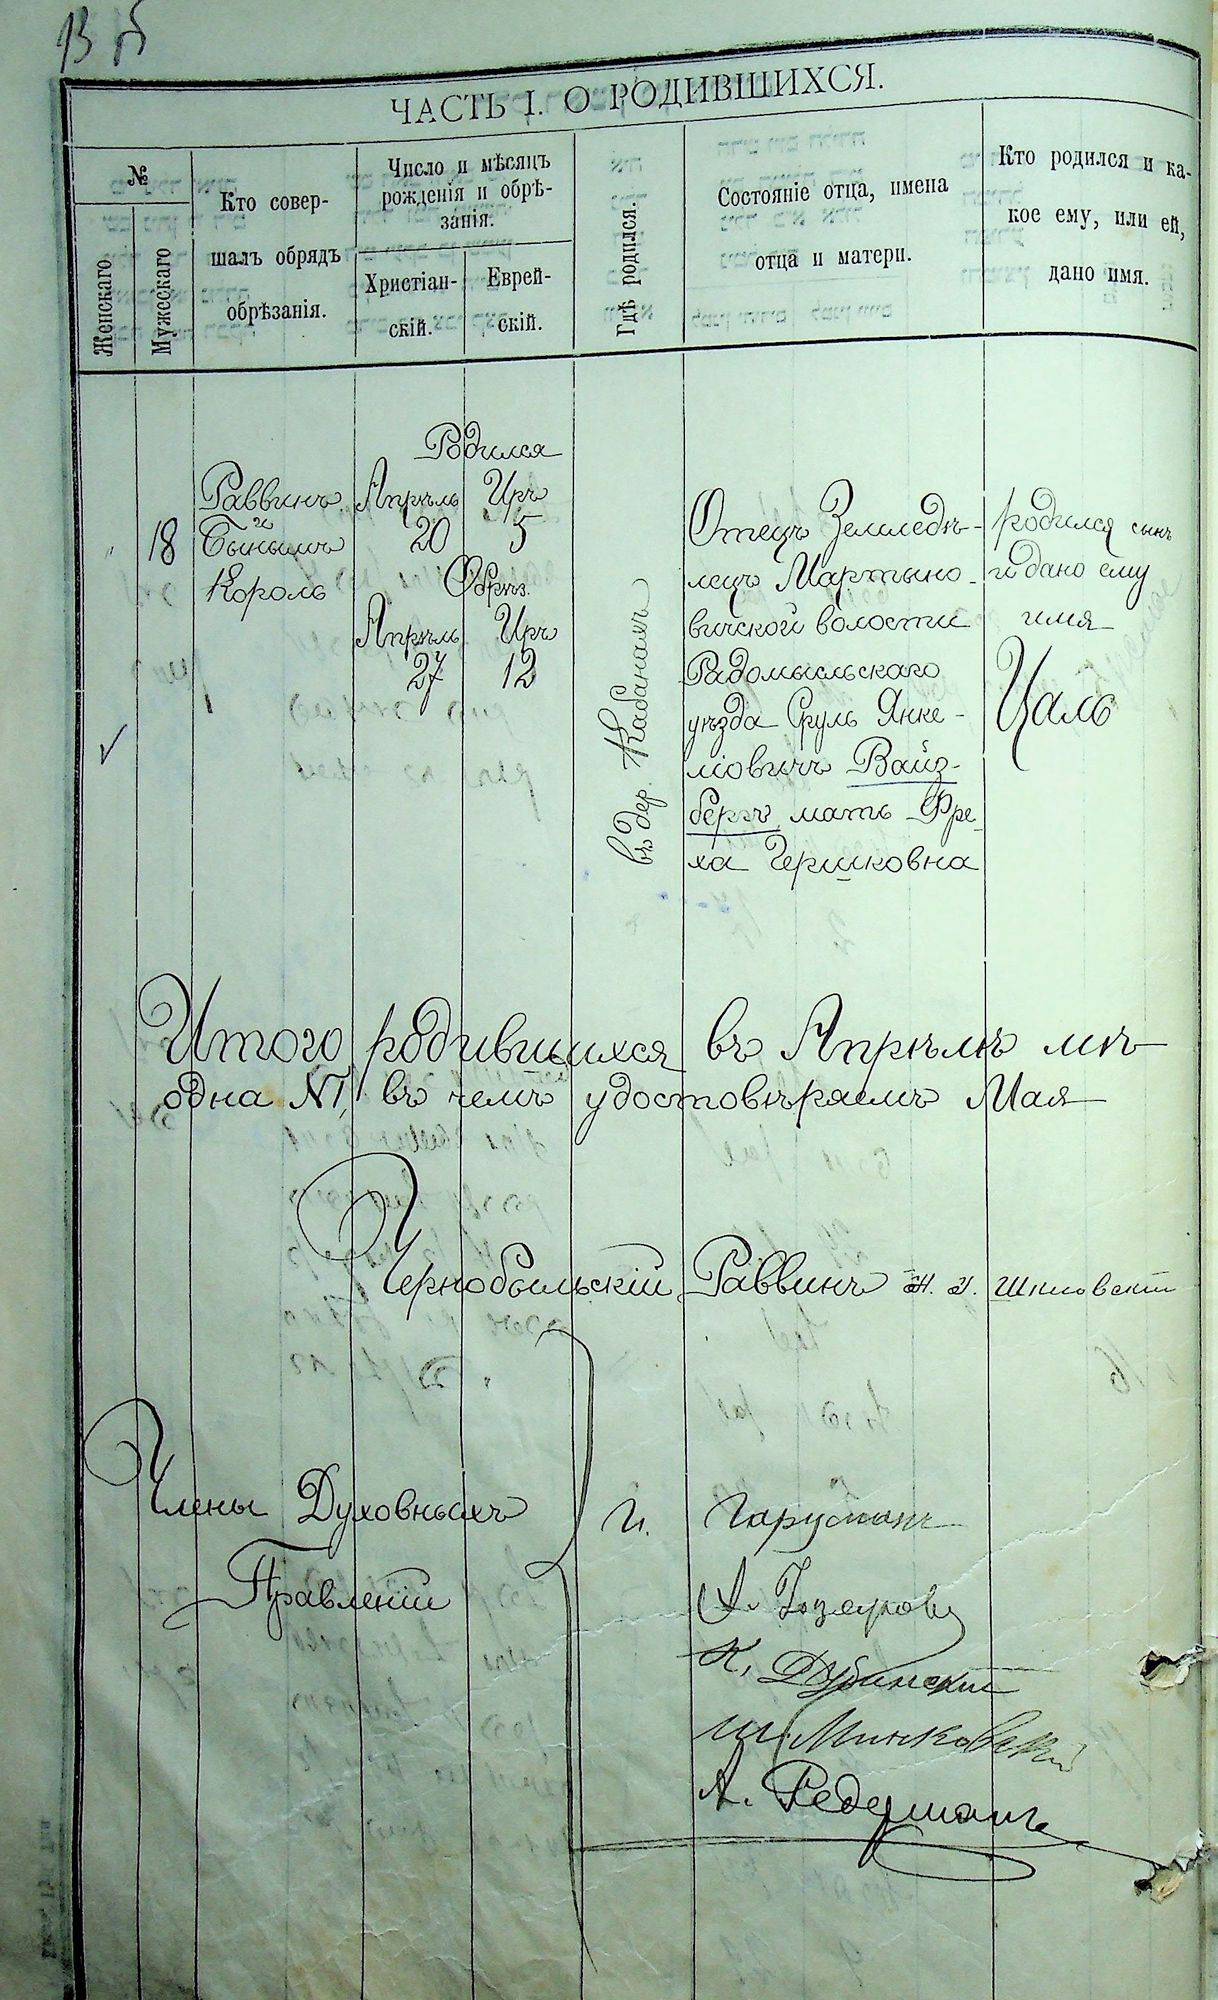 ЧАСТЬ I. О РОДИВШИХСЯ.
№
Женскаго
Мужескаго
Кто совер-
шалъ обрядъ
обрѣзанія.
Число и мѣсяцъ
рожденія и обрѣ-
занія.
Христіан-
скій.
Еврей-
скій.
Гдѣ родился.
Состояніе отца, имена
отца и матери.
Кто родился и ка-
кое ему, или ей,
дано имя.
18
Раввинъ
Король
Родился
Апрѣль Иръ
20 5
Обрѣз.
Апрѣль Иръ
27 12
въ дер. Кабанахъ
Отецъ Земледѣ-
лецъ Мартыно-
вичской волости
Радомысльскаго
уѣзда Сруль Янке-
ліовичъ Вайз-
бергъ мать Фре-
ха Гершковна
родился сынъ
и дано ему
имя
Цаль
Итого родившихся въ Апрѣлѣ мѣ-
одна №1, въ чемъ удостовѣряемъ Мая
Чернобыльскій Раввинъ Шкловскій
Члены Духовныхъ
Правленій
К. Дубинскій
Ш. Минковскій
А. Редерманъ